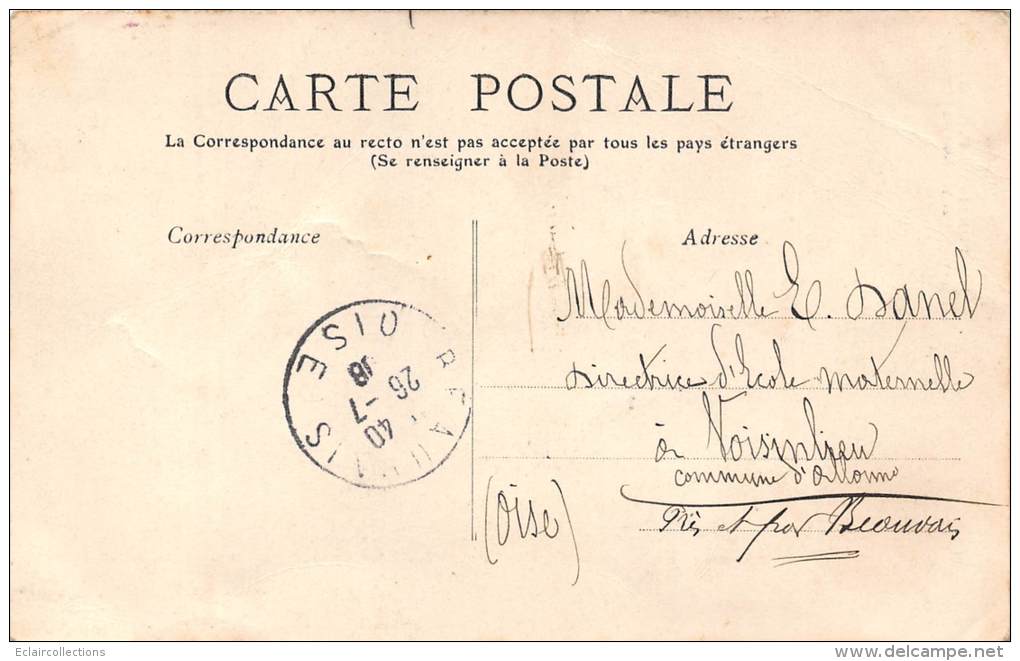 CARTE POSTALE
La Correspondance au recto n'est pas acceptée par tous les pays étrangers
(Se renseigner à la Poste)
Correspondance
Adresse
Mademoiselle E. Danel
Directrice d'Ecole maternelle
à Voisinlieu
commune d'Allonne
Près et par Beauvais
(Oise)
BEAUVAIS
OISE
26 -7
Eclaircollections
delcampe.net